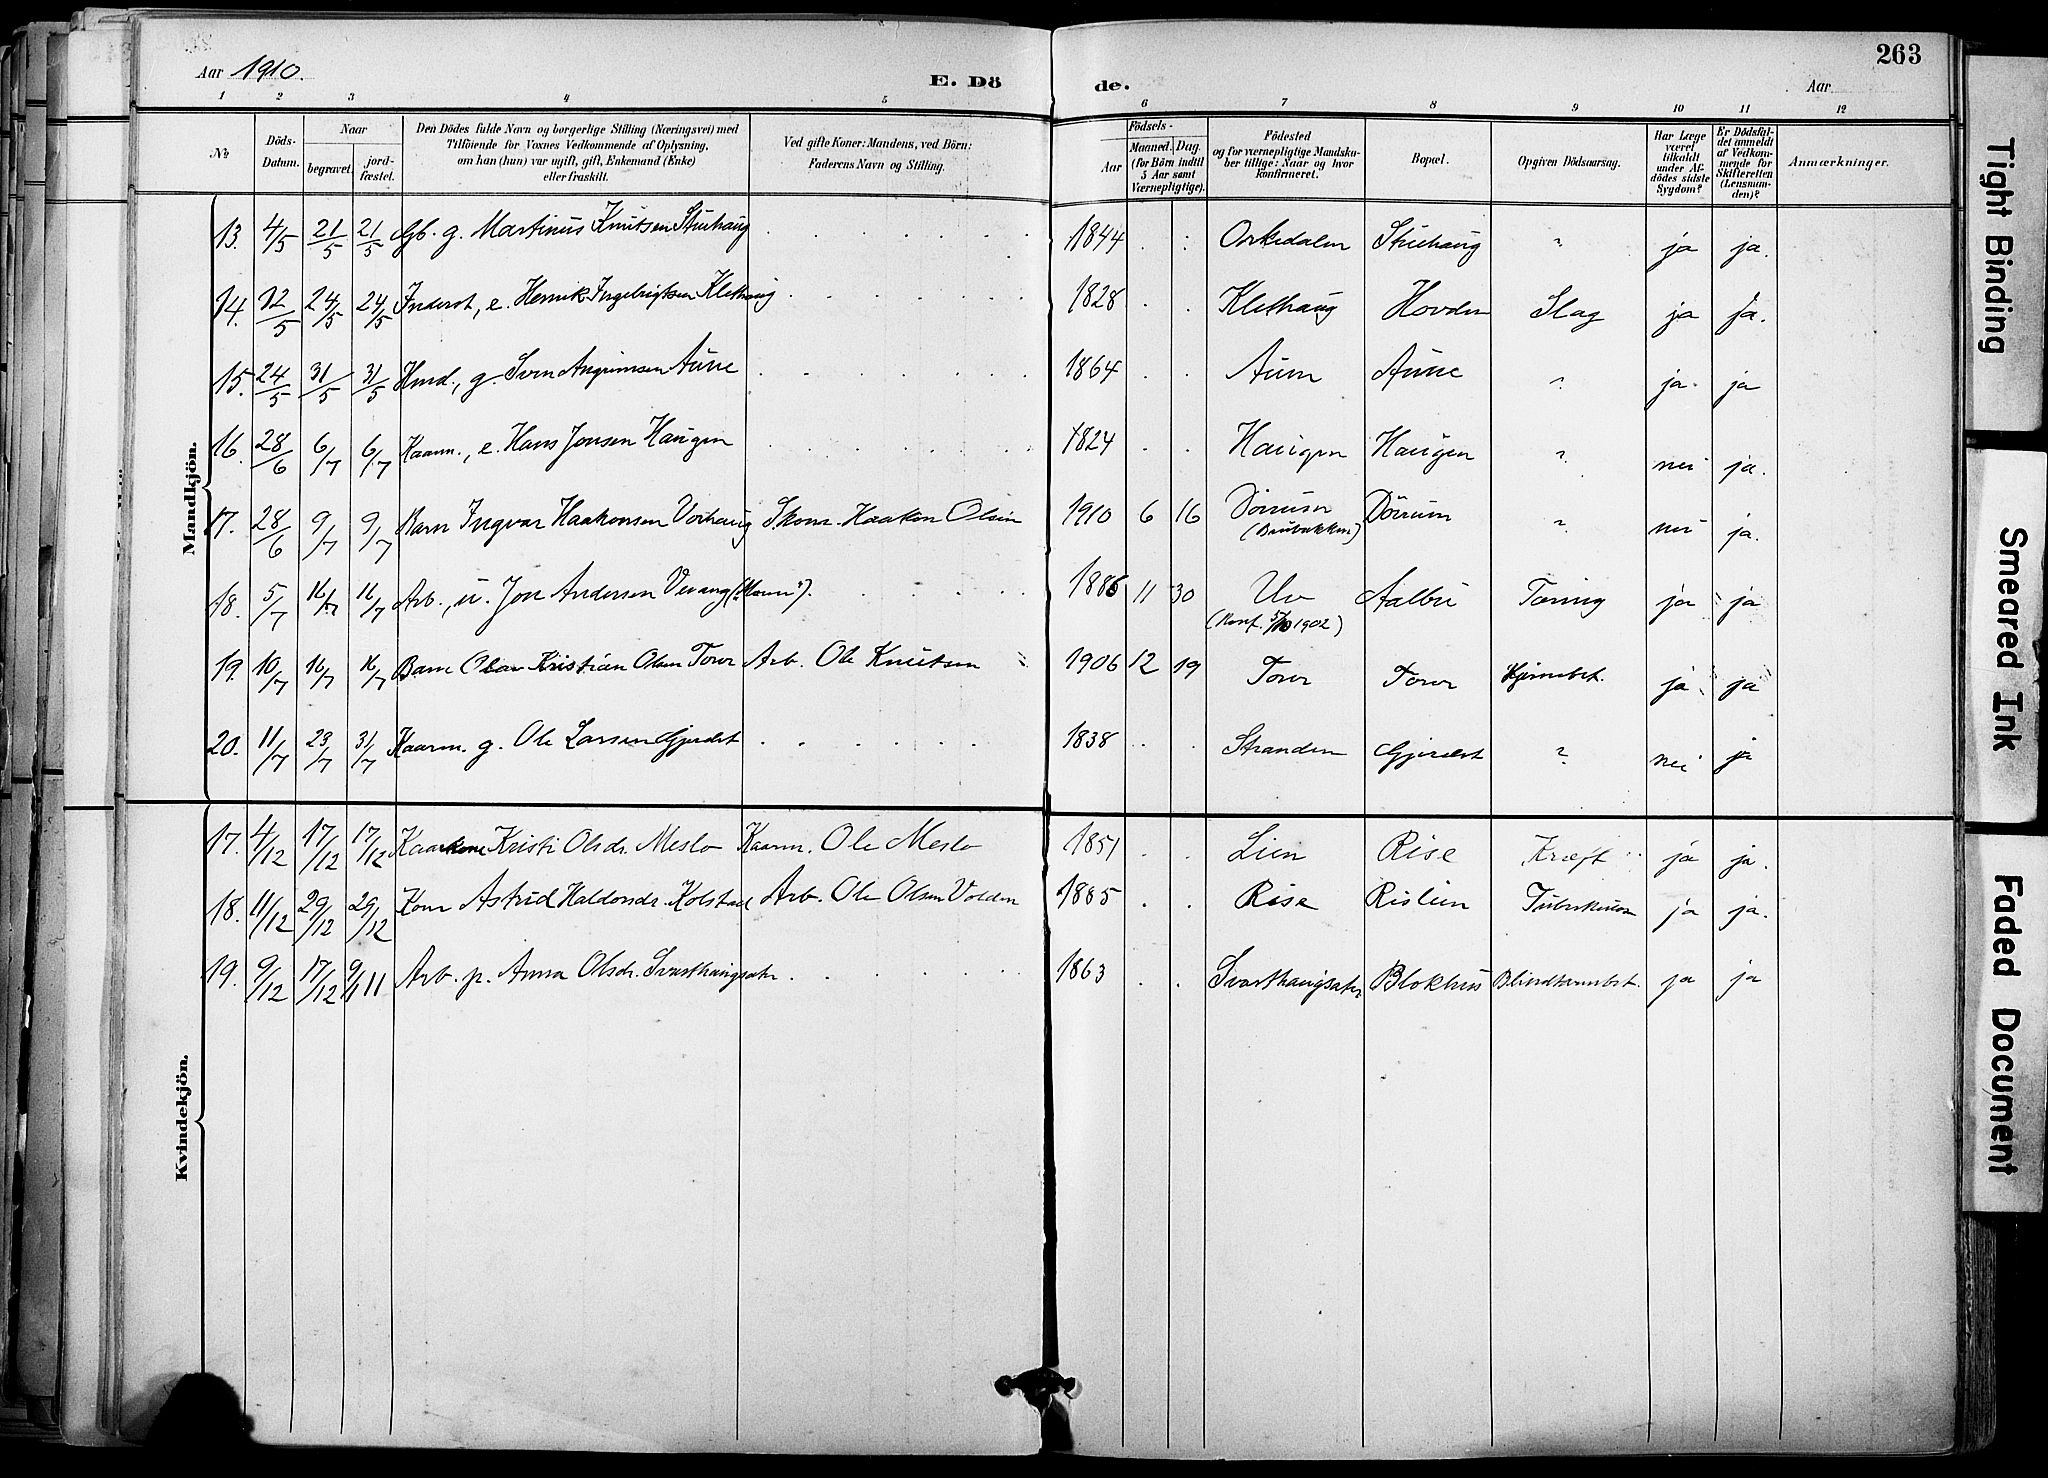 263
Aar 1910.
E. Dö
de.
Aar
1 2 3 4 5 6 7 8 9 10 11 12
No
Döds-Datum.
Naar
begravet.
jord-fæstet.
Den Dödes fulde Navn og borgerlige Stilling (Næringsvei) med
Tilföiende for Voxnes Vedkommende af Oplysning,
om han (hun) var ugift, gift, Enkemand (Enke)
eller fraskilt.
Ved gifte Koner: Mandens, ved Börn:
Faderens Navn og Stilling.
Födsels-
Aar
Maaned. Dag.
(for Börn indtil
5 Aar samt
Værnepligtige).
Födested
og for værnepligtige Mandska-
ber tillige: Naar og hvor
konfirmeret.
Bopæl.
Opgiven Dödsaarsag.
Har Læge
været
tilkaldt
under Af-
dödes sidste
Sygdom?
Er Dödsfal-
det anmeldt
af Vedkom-
mende for
Skifteretten
(Lensman-
den)?
Anmærkninger.
Mandkjön.
13. 4/5 21/5 21/5 Gb. g. Martinus Knutsen Stuehaug 1844 Orkedalen Stuehaug " ja ja.
14. 12/5 24/5 24/5 Inderst, e. Henrik Ingebrigtsen Klethaug 1828 Klethaug Hovden Slag ja ja.
15. 24/5 31/5 31/5 Hmd., g. Sven Arngrimsen Aune 1864 Aune Aune ? ja. ja
16. 28/6 6/7 6/7 Kaarm., e. Hans Jonsen Haugen 1824 Haugen Haugen ? nei ja.
17. 28/6 9/7 9/7 Barn Ingvar Haakonsen Vorhaug Skom. Haakon Olsen 1910 6 16 Dörrum Dörrum ? nei ja.
(Brubakken)
18. 5/7 16/7 16/7 Arb., u. Jon Andersen Vevang ("Moen"). 1886 11 30 Uv Aalbu Tæring ja ja
(Konf. 5/10 1902)
19. 10/7 16/7 16/7 Barn Olav Kristian Olsen Torve Arb. Ole Knutsen 1906 12 19 Torve Torve Hjernebet. ja ja
20. 11/7 23/7 31/7 Kaarm. g. Ole Larsen Gjerdet 1838 Stranden Gjerdet ? nei ja
Kvindekjön.
17. 4/12 17/12 17/12 Kaarkone Kristi Olsdr. Meslo Kaarm. Ole Meslo 1851 Lien Rise Kræft ja ja.
18. 11/12 29/12 29/12 Kone Astrid Haldorsdr. Kolstad Arb. Ole Olsen Volden 1885 Rise Rislien Tuberkulose ja ja.
19. 9/12 17/12 9/1 11 Arb. p. Anna Olsdr. Svarthaugsæter 1863 Svarthaugsæter Blokhus Blindtarmbet. ja ja
Tight Binding
Smeared Ink
Faded Document